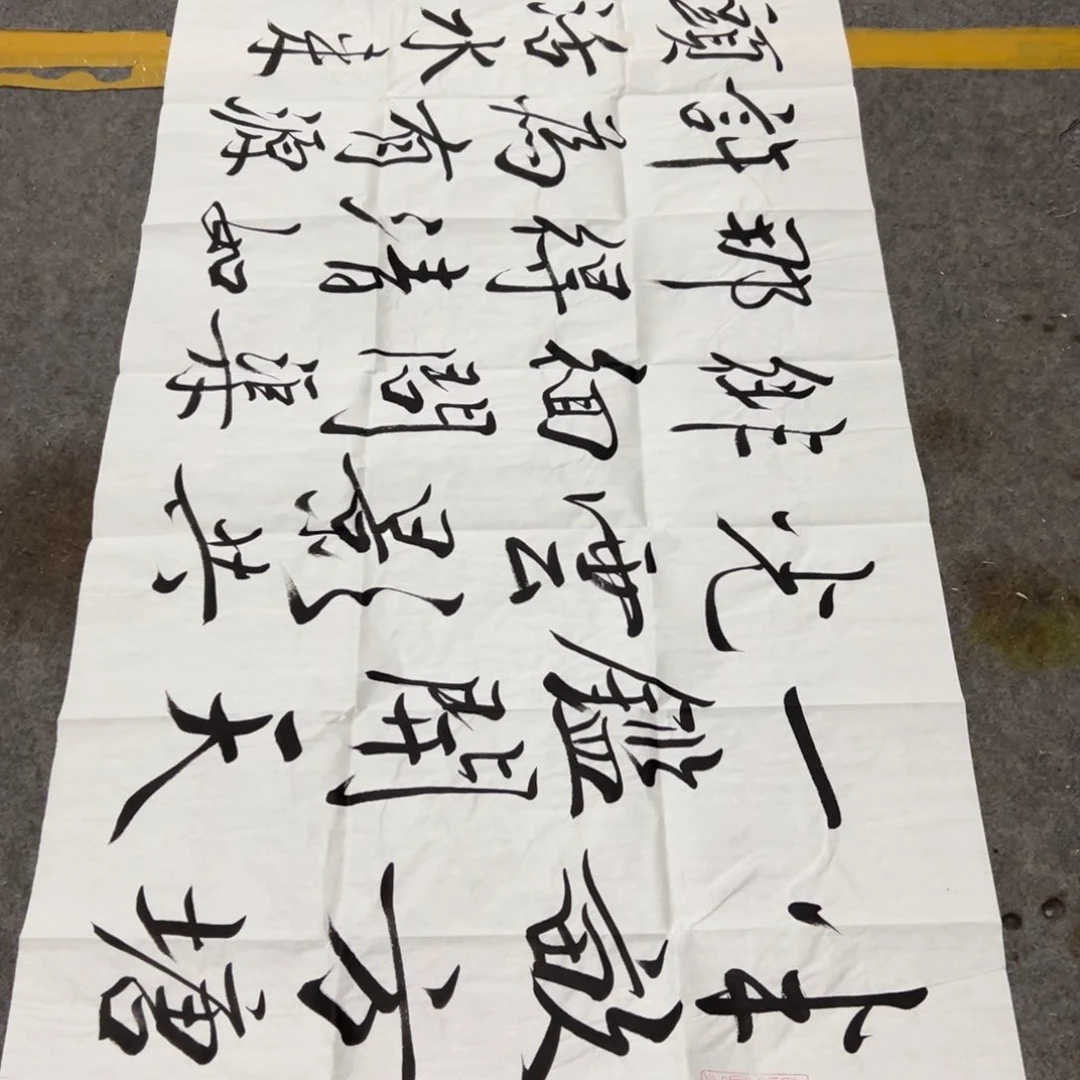 半畝方塘
一鑑開天
光雲影共
徘徊問渠
那得清如
許為有源
頭活水來